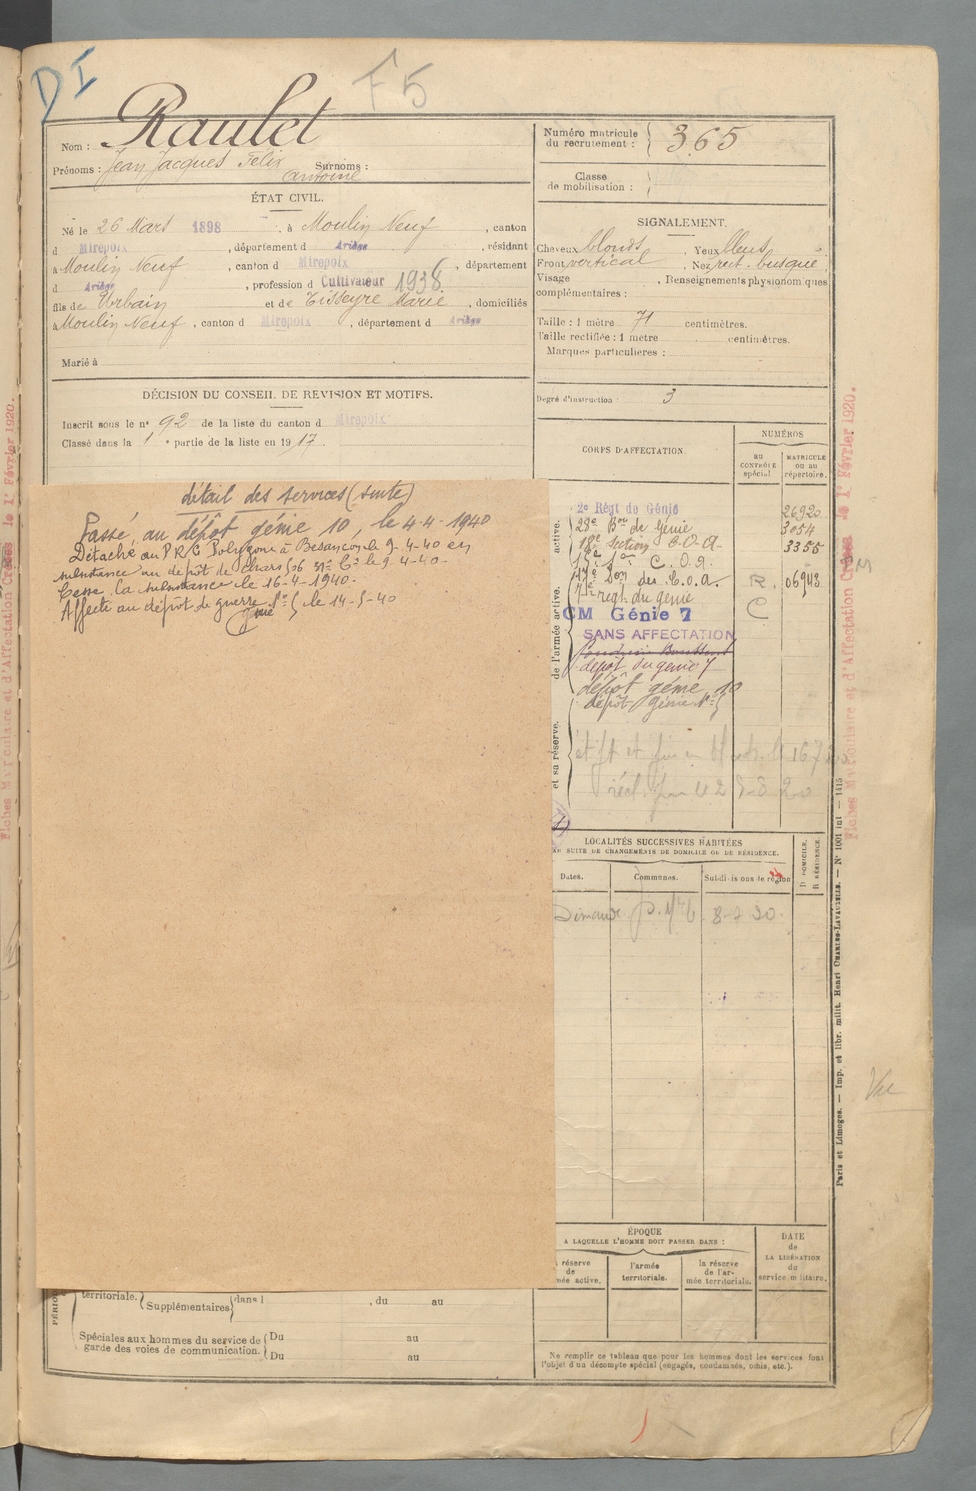 D I
F 5
Raulet
Nom :
Prénoms : Jean Jacques Felix
Surnoms :
Antoine
ÉTAT CIVIL.
Né le 26 Mars 1898, à Moulin Neuf, canton
d Mirepoix, département d Ariège, résidant
à Moulin Neuf, canton d Mirepoix, département
d Ariège, profession d Cultivateur 1938
fils de Urbain et de Tisseyre Marie, domiciliés
à Moulin Neuf, canton d Mirepoix, département d Ariège
Marié à
DÉCISION DU CONSEIL DE REVISION ET MOTIFS.
Inscrit sous le n° 92 de la liste du canton d Mirepoix
Classé dans la 1e partie de la liste en 1917.
détail des services (suite)
Passé, au dépôt génie 10, le 4-4-1940
Détaché au P R G Polygone à Besançon le 9-4-40 en
subsistance au dépôt de chars 506 le 9-4-40.
Cesse la subsistance le 16-4-1940.
Affecté au dépôt de guerre génie n° 5 le 14-5-40
territoriale. Supplémentaires dans l , du au
Spéciales aux hommes du service de garde des voies de communication. Du au
Du au
Numéro matricule du recrutement : 365
Classe de mobilisation :
SIGNALEMENT.
Cheveux blonds, Yeux bleus,
Front vertical, Nez rect. busqué
Visage , Renseignements physionomiques
complémentaires :
Taille : 1 mètre 71 centimètres.
Taille rectifiée : 1 mètre centimètres.
Marques particulières :
Degré d'instruction : 3
CORPS D'AFFECTATION.
NUMÉROS
AU CONTRÔLE spécial.
MATRICULE ou au répertoire.
de l'armée active.
2e Régt de Génie 26920
28e Bon de Génie 3054
18e Section C.O.A. 3355
C.O.A.
17e Son des C.O.A. R. 06943
7e régt du génie C
CM Génie 7
SANS AFFECTATION
dépôt du génie 7
dépôt génie 10
dépôt génie n° 5
et sa réserve.
LOCALITÉS SUCCESSIVES HABITÉES
PAR SUITE DE CHANGEMENTS DE DOMICILE OU DE RÉSIDENCE.
Dates.
Communes.
Subdivisions de région
D DOMICILE.
R RÉSIDENCE.
8-7 30
ÉPOQUE
A LAQUELLE L'HOMME DOIT PASSER DANS :
la réserve de l'armée active.
l'armée territoriale.
la réserve de l'armée territoriale.
DATE
de
LA LIBÉRATION
du
service militaire.
Ne remplir ce tableau que pour les hommes dont les services font
l'objet d'un décompte spécial (engagés, condamnés, omis, etc.).
Fiches Matriculaire et d'Affectation Créées le 1er Février 1920.
Fiches Matriculaire et d'Affectation Créées le 1er Février 1920.
Paris et Limoges. — Imp. et libr. milit. Henri CHARLES-LAVAUZELLE. — N° 1001 int — 1415
Vu